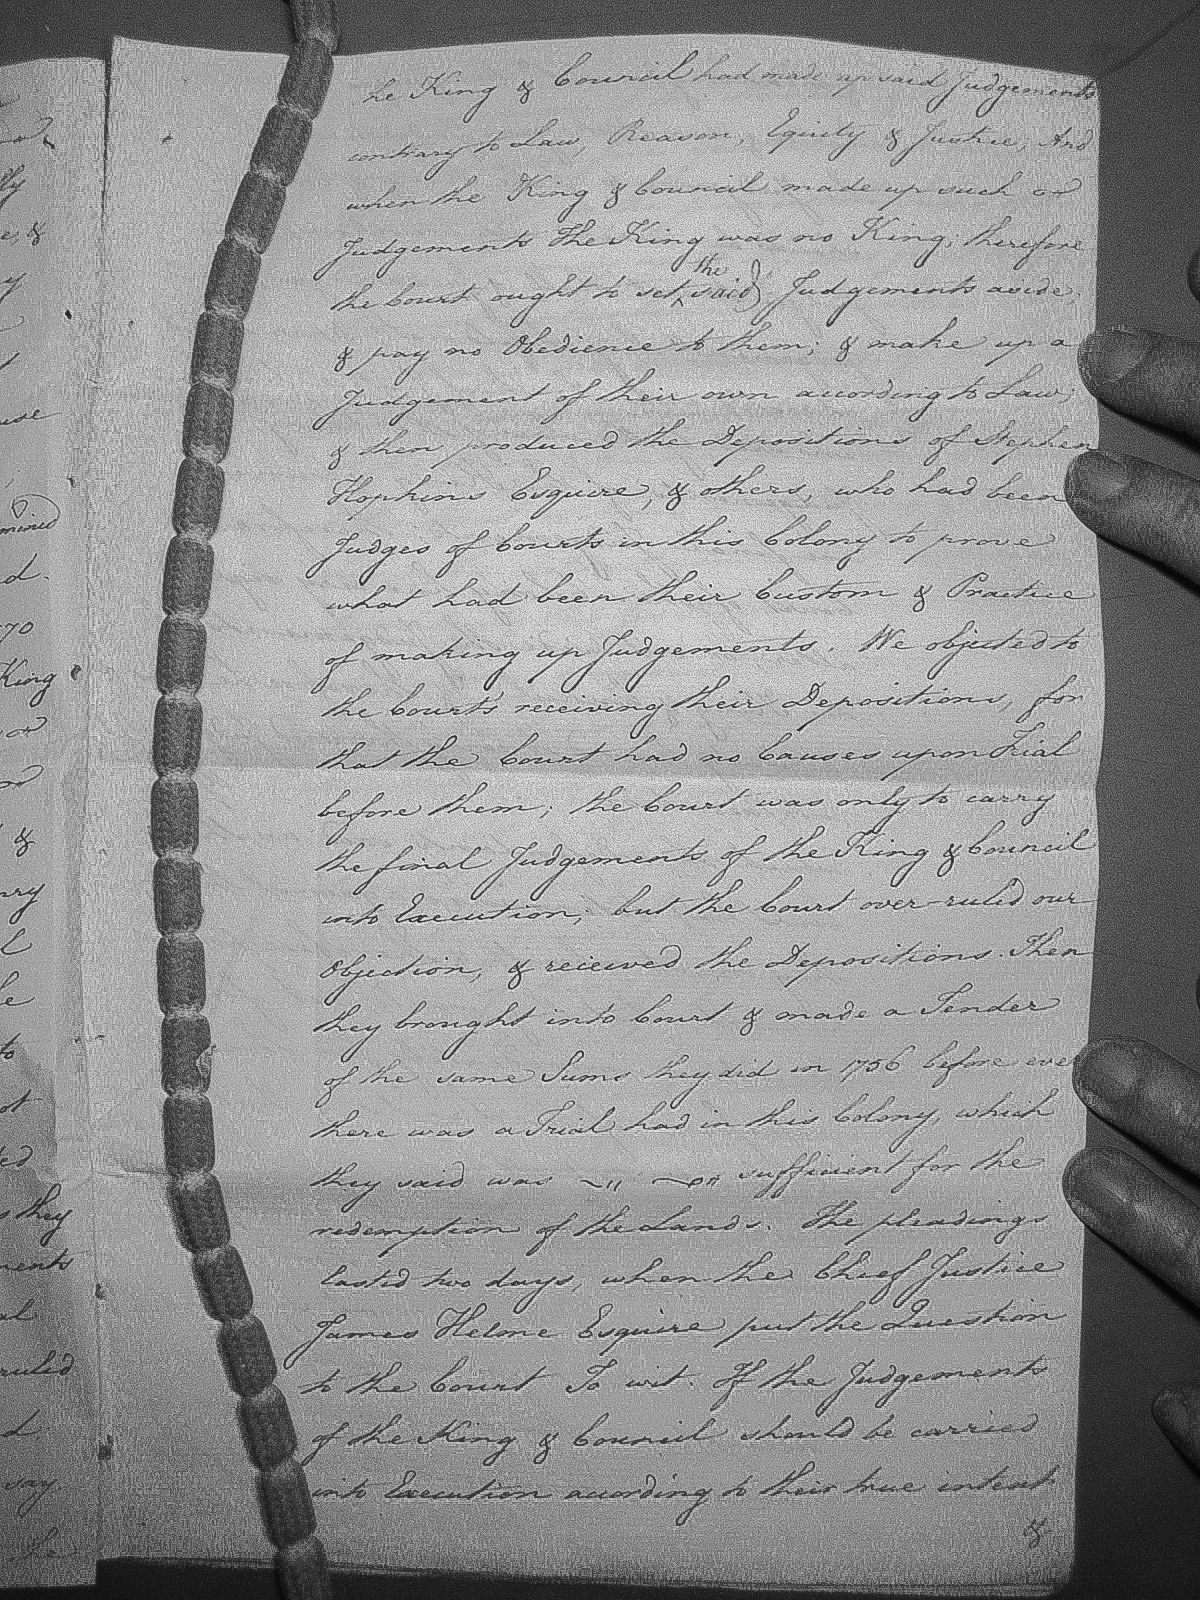 he King & Council had made up said Judgements
contrary to Law, Reason, Equity & Justice; And
when the King & Council made up such
Judgements The King was no King; therefore
the
the Court ought to set said Judgements aside,
& pay no Obedience to them; & make up a
Judgement of their own according to Law;
& then produced the Depositions of Stephen
Hopkins Esquire, & others, who had been
Judges of Courts in this Colony to prove
what had been their Custom & Practice
of making up Judgements. We objected to
the Courts receiving their Depositions, for
that the Court had no Causes upon Trial
before them; the Court was only to carry
the final Judgements of the King & Council
into Execution; but the Court over-ruled our
Objection, & received the Depositions. Then
they brought into Court & made a Tender
of the same Sums they did in 1756 before ever
there was a Trial had in this Colony, which
they said was sufficient for the
redemption of the Lands. The pleadings
lasted two days, when the Chief Justice
James Helme Esquire put the Question
to the Court To wit. If the Judgements
of the King & Council should be carried
into Execution according to their true intent
&